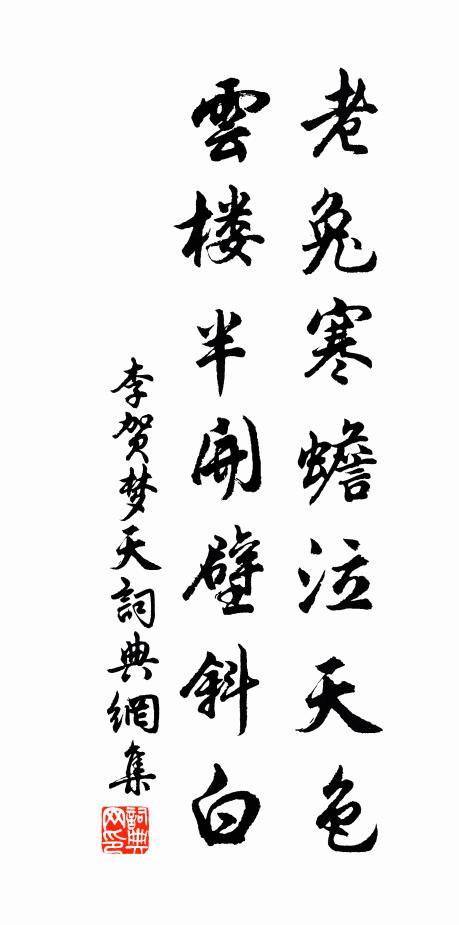 老兔寒蟾泣天色
雲楼半開壁斜白
李贺梦天詞典網集
詞典网印